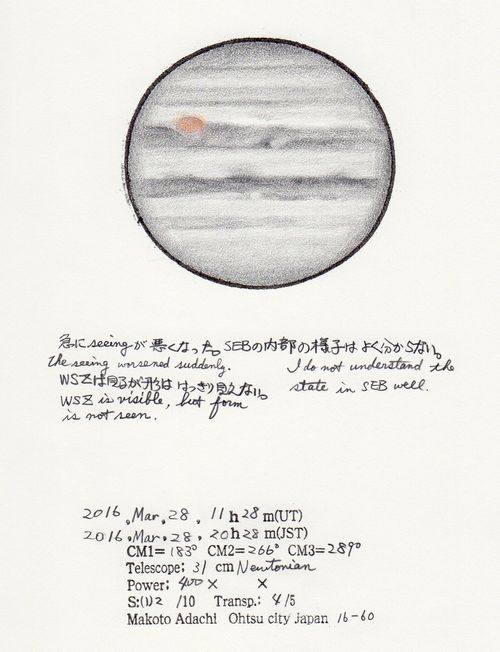 急にseeingが悪くなった。SEBの内部の様子はよく分からない。
the seeing worsened suddenly. I do not understand the
WSZは見るが形ははっきり見えない。 state in SEB well.
WSZ is visible, but form
is not seen.
2016 , Mar, 28 , 11 h 28 m(UT)
2016 , Mar. 28 , 20 h 28 m(JST)
CM1= 183° CM2= 266° CM3= 289°
Telescope; 31 cm Newtonian
Power; 400 × ×
S:(1) 2 /10 Transp.: 4 /5
Makoto Adachi Ohtsu city Japan 16-60